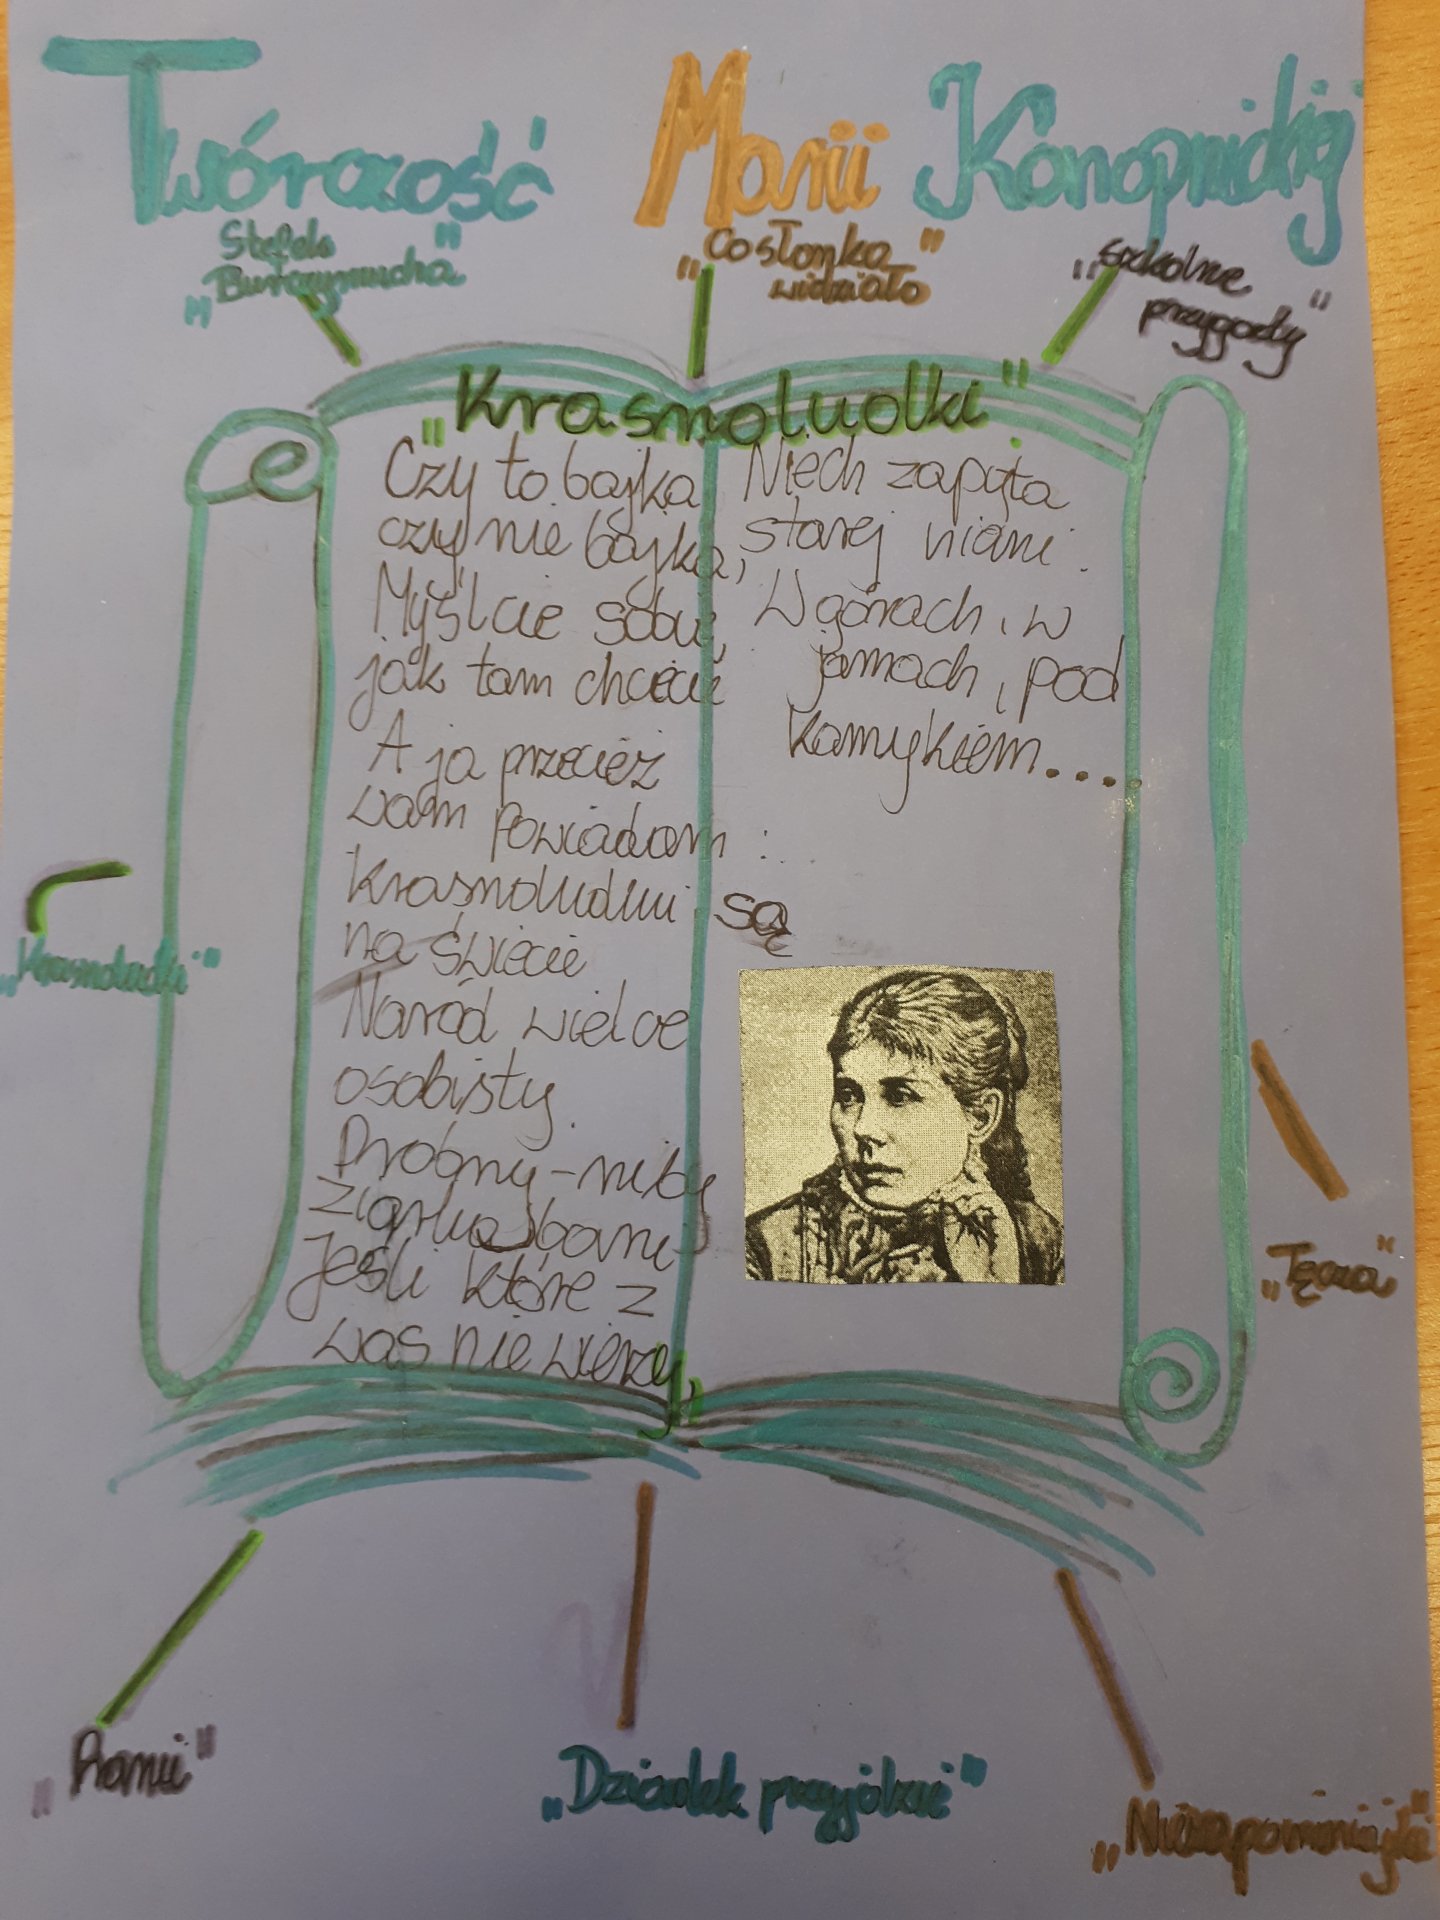 Twórczość Marii Konopnickiej
„Stefek
Burczymucha"
„Co słonko
widziało"
„szkolne
przygody"
„Krasnoludki"
Czy to bajka
czy nie bajka,
Myślcie sobie,
jak tam chcecie
A ja przecież
wam powiadam:
Krasnoludki są
na świecie
Naród wielce
osobisty.
Drobny-niby
ziarnka bani
Jeśli które z
was nie wierzy,
Niech zapyta
starej niani.
W górach, w
jamach, pod
kamykiem....
„Krasnoludki"
„Tęcza"
„Dziadek przyjdzie"
„Niezapominajki"